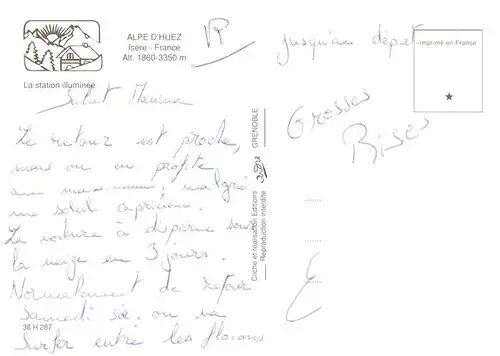 ALPE D'HUEZ
Isère - France
Alt. 1860-3350 m
La station illuminée
Salut
Le retour est proche,
mais on en profite
au malgré
un soleil capricieux.
La voiture à disparue sous
la neige en 3 jours.
Normalement de retour
Samedi soir on va
Surfer entre les flocons
38 H 287
Cliché et réalisation Editions
Reproduction interdite
GRENOBLE
jusqu'au départ
Grosses
Bises
Imprimé en France